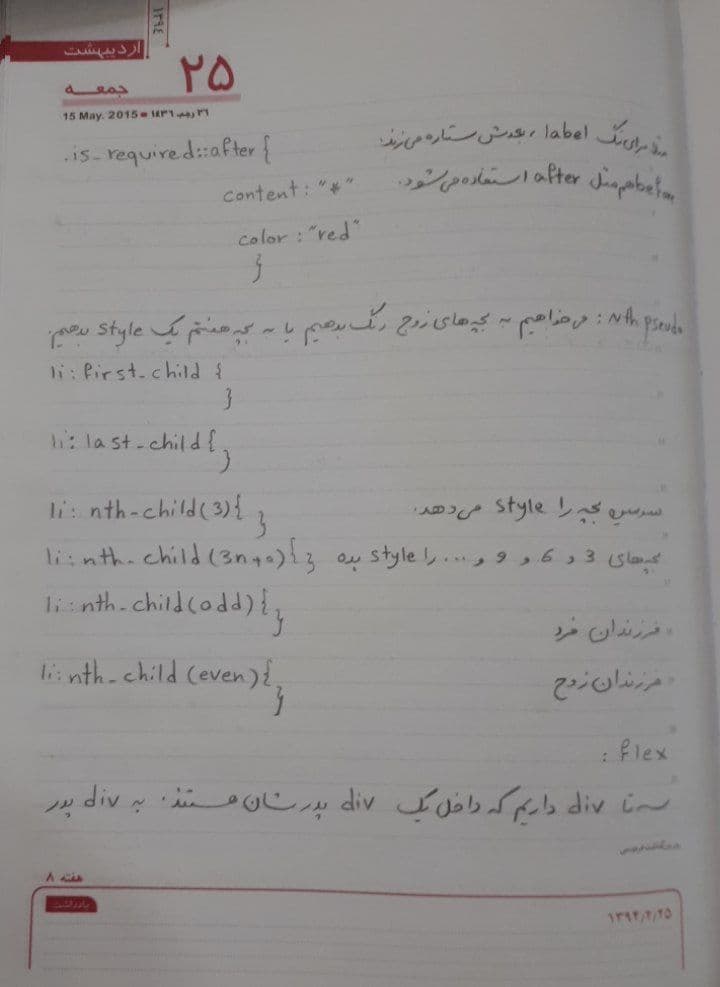 ۱۳۹٤
اردیبهشت
۲۵
جمعـــه
15 May. 2015 ■ ۲٦ رجب ۱٤۳٦
برای تگ label ، بعدش ستاره می‌زند:
.is_required::after {
هم مثل after استفاده می‌شود.
content : "*"
color : "red"
}
Nth pseudo : می‌خواهیم به بچه‌های زوج رنگ بدهیم یا به بچه هشتم یک style بدهیم.
li : first_child {
}
li : last_child {
}
li : nth-child(3){ } سومین بچه را style می‌دهد.
li : nth_child (3n+0){ } بچه‌های 3 و 6 و 9 و ... را style بده
li : nth_child(odd){
} فرزندان فرد
li : nth_child (even){
} فرزندان زوج
flex :
سه تا div داریم که داخل یک div پدرشان هستند. به div پدر
هفته ۸
یادداشت
۱۳۹۴/۲/۲۵